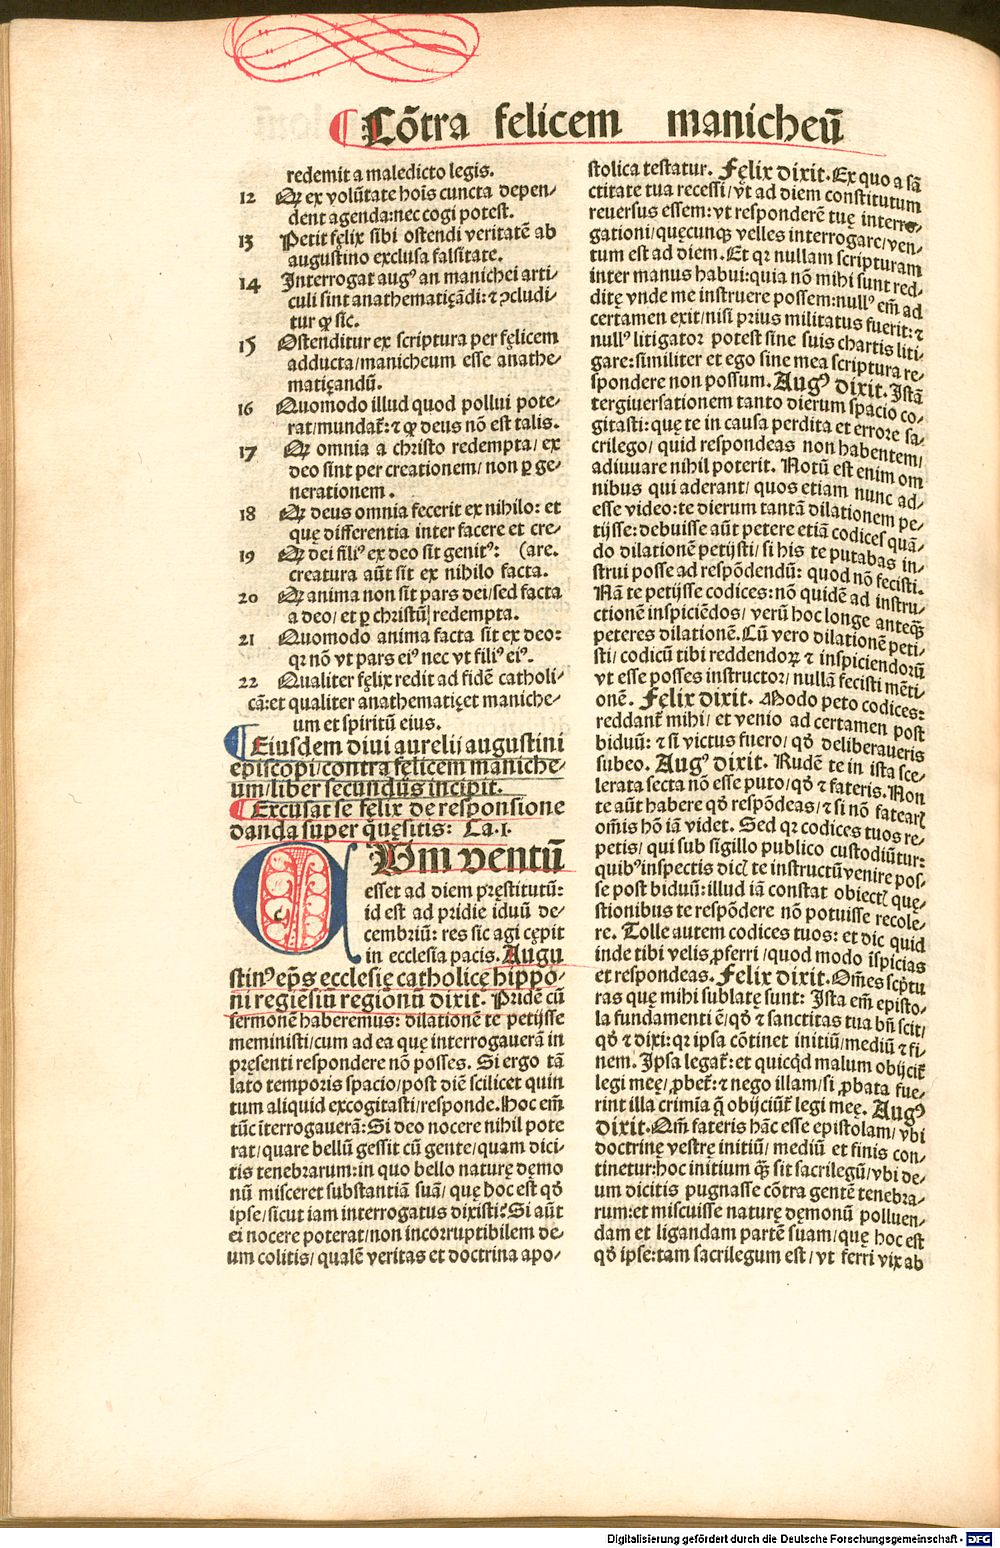 Cōtra felicem manicheū
redemit a maledicto legis.
12 Qꝛ ex volūtate hoīs cuncta depen-
dent agenda: nec cogi potest.
13 Petit fęlix sibi ostendi veritatē ab
augustino exclusa falsitate.
14 Interrogat augꝰ an manichei arti-
culi sint anathematiçādi: ⁊ ꝯcludi-
tur ꝙ sic.
15 Ostenditur ex scriptura per fęlicem
adducta/ manicheum esse anathe-
matiçandū.
16 Quomodo illud quod pollui pote-
rat/ mundat᷑: ⁊ ꝙ deus nō est talis.
17 Qꝛ omnia a christo redempta/ ex
deo sint per creationem/ non ꝑ ge-
nerationem.
18 Qꝛ deus omnia fecerit ex nihilo: et
quę differentia inter facere et cre-
19 Qꝛ dei filiꝰ ex deo sit genitꝰ: (are.
creatura aūt sit ex nihilo facta.
20 Qꝛ anima non sit pars dei/ sed facta
a deo/ et ꝑ christū redempta.
21 Quomodo anima facta sit ex deo:
qꝛ nō vt pars eiꝰ nec vt filiꝰ eiꝰ.
22 Qualiter fęlix redit ad fidē catholi-
cā: et qualiter anathematiçet maniche-
um et spiritū eius.
Eiusdem diui aurelij augustini
episcopi/ contra felicem maniche-
um/ liber secundus incipit.
Excusat se fęlix de responsione
danda super quęsitis: Ca.i.
QUm ventū
esset ad diem pręstitutū:
id est ad pridie iduū de-
cembriū: res sic agi cępit
in ecclesia pacis. Augu
stinꝰ ep̄s ecclesię catholicę hippo-
ni regiēsiū regionū dixit. Pridē cū
sermonē haberemus: dilationē te petijsse
meministi/ cum ad ea quę interrogauerā in
pręsenti respondere nō posses. Si ergo tā
lato temporis spacio/ post diē scilicet quin
tum aliquid excogitasti/ responde. Hoc em̄
tūc īterrogauerā: Si deo nocere nihil pote
rat/ quare bellū gessit cū gente/ quam dici-
tis tenebrarum: in quo bello naturę dęmo
nū misceret substantiā suā/ quę hoc est qd̄
ipse/ sicut iam interrogatus dixisti? Si aūt
ei nocere poterat/ non incorruptibilem de-
um colitis/ qualē veritas et doctrina apo-
stolica testatur. Fęlix dixit. Ex quo a sā
ctitate tua recessi/ vt ad diem constitutum
reuersus essem: vt responderē tuę interro-
gationi/ quęcunqꝫ velles interrogare/ ven-
tum est ad diem. Et qꝛ nullam scripturam
inter manus habui: quia nō mihi sunt red-
ditę vnde me instruere possem: nullꝰ em̄ ad
certamen exit/ nisi prius militatus fuerit: ⁊
nullꝰ litigator potest sine suis chartis liti-
gare: similiter et ego sine mea scriptura re-
spondere non possum. Augꝰ dixit. Istā
tergiuersationem tanto dierum spacio co-
gitasti: quę te in causa perdita et errore sa-
crilego/ quid respondeas non habentem/
adiuuare nihil poterit. Notū est enim om
nibus qui aderant/ quos etiam nunc ad-
esse video: te dierum tantā dilationem pe-
tijsse: debuisse aūt petere etiā codices quā-
do dilationē petijsti/ si his te putabas in-
strui posse ad respōdendū: quod nō fecisti.
Nā te petijsse codices: nō quidē ad instru-
ctionē inspiciēdos/ verū hoc longe anteqꝫ
peteres dilationē. Cū vero dilationē peti-
sti/ codicū tibi reddendoꝝ ⁊ inspiciendorū
vt esse posses instructor/ nullā fecisti mēti-
onē. Fęlix dixit. Modo peto codices:
reddant᷑ mihi/ et venio ad certamen post
biduū: ⁊ si victus fuero/ qd̄ deliberaueris
subeo. Augꝰ dixit. Rudē te in ista sce-
lerata secta nō esse puto/ qd̄ ⁊ fateris. Non
te aūt habere qd̄ respōdeas/ ⁊ si nō fatearꝭ
om̄is hō iā videt. Sed qꝛ codices tuos re-
petis/ qui sub sigillo publico custodiūtur:
quibꝰ inspectis dicꝭ te instructū venire pos-
se post biduū: illud iā constat obiectꝭ quę-
stionibus te respōdere nō potuisse recole-
re. Tolle autem codices tuos: et dic quid
inde tibi velis ꝓferri/ quod modo īspicias
et respondeas. Fęlix dixit. Om̄es scp̄tu
ras quę mihi sublatę sunt: Ista em̄ episto-
la fundamenti ē/ qd̄ ⁊ sanctitas tua bn̄ scit/
qd̄ ⁊ dixi: qꝛ ipsa cōtinet initiū/ mediū ⁊ fi-
nem. Ipsa legat᷑: et quicqd malum obijcit᷑
legi meę/ ꝓbet᷑: ⁊ nego illam/ si ꝓbata fue-
rint illa crimīa q̄ obijciūt᷑ legi meę. Augꝰ
dixit. Qm̄ fateris hāc esse epistolam/ vbi
doctrinę vestrę initiū/ mediū et finis con-
tinetur: hoc initium qꝫ sit sacrilegū/ vbi de-
um dicitis pugnasse cōtra gentē tenebra-
rum: et miscuisse naturę dęmonū polluen-
dam et ligandam partē suam/ quę hoc est
qd̄ ipse: tam sacrilegum est/ vt ferri vix ab
Digitalisierung gefördert durch die Deutsche Forschungsgemeinschaft - DFG